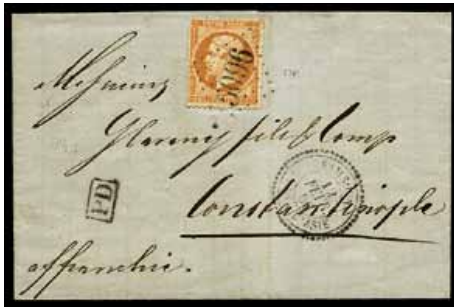 5096
Messieurs
Glavany fils & Comp
Constantinople
PD
ASIE
affranchie.